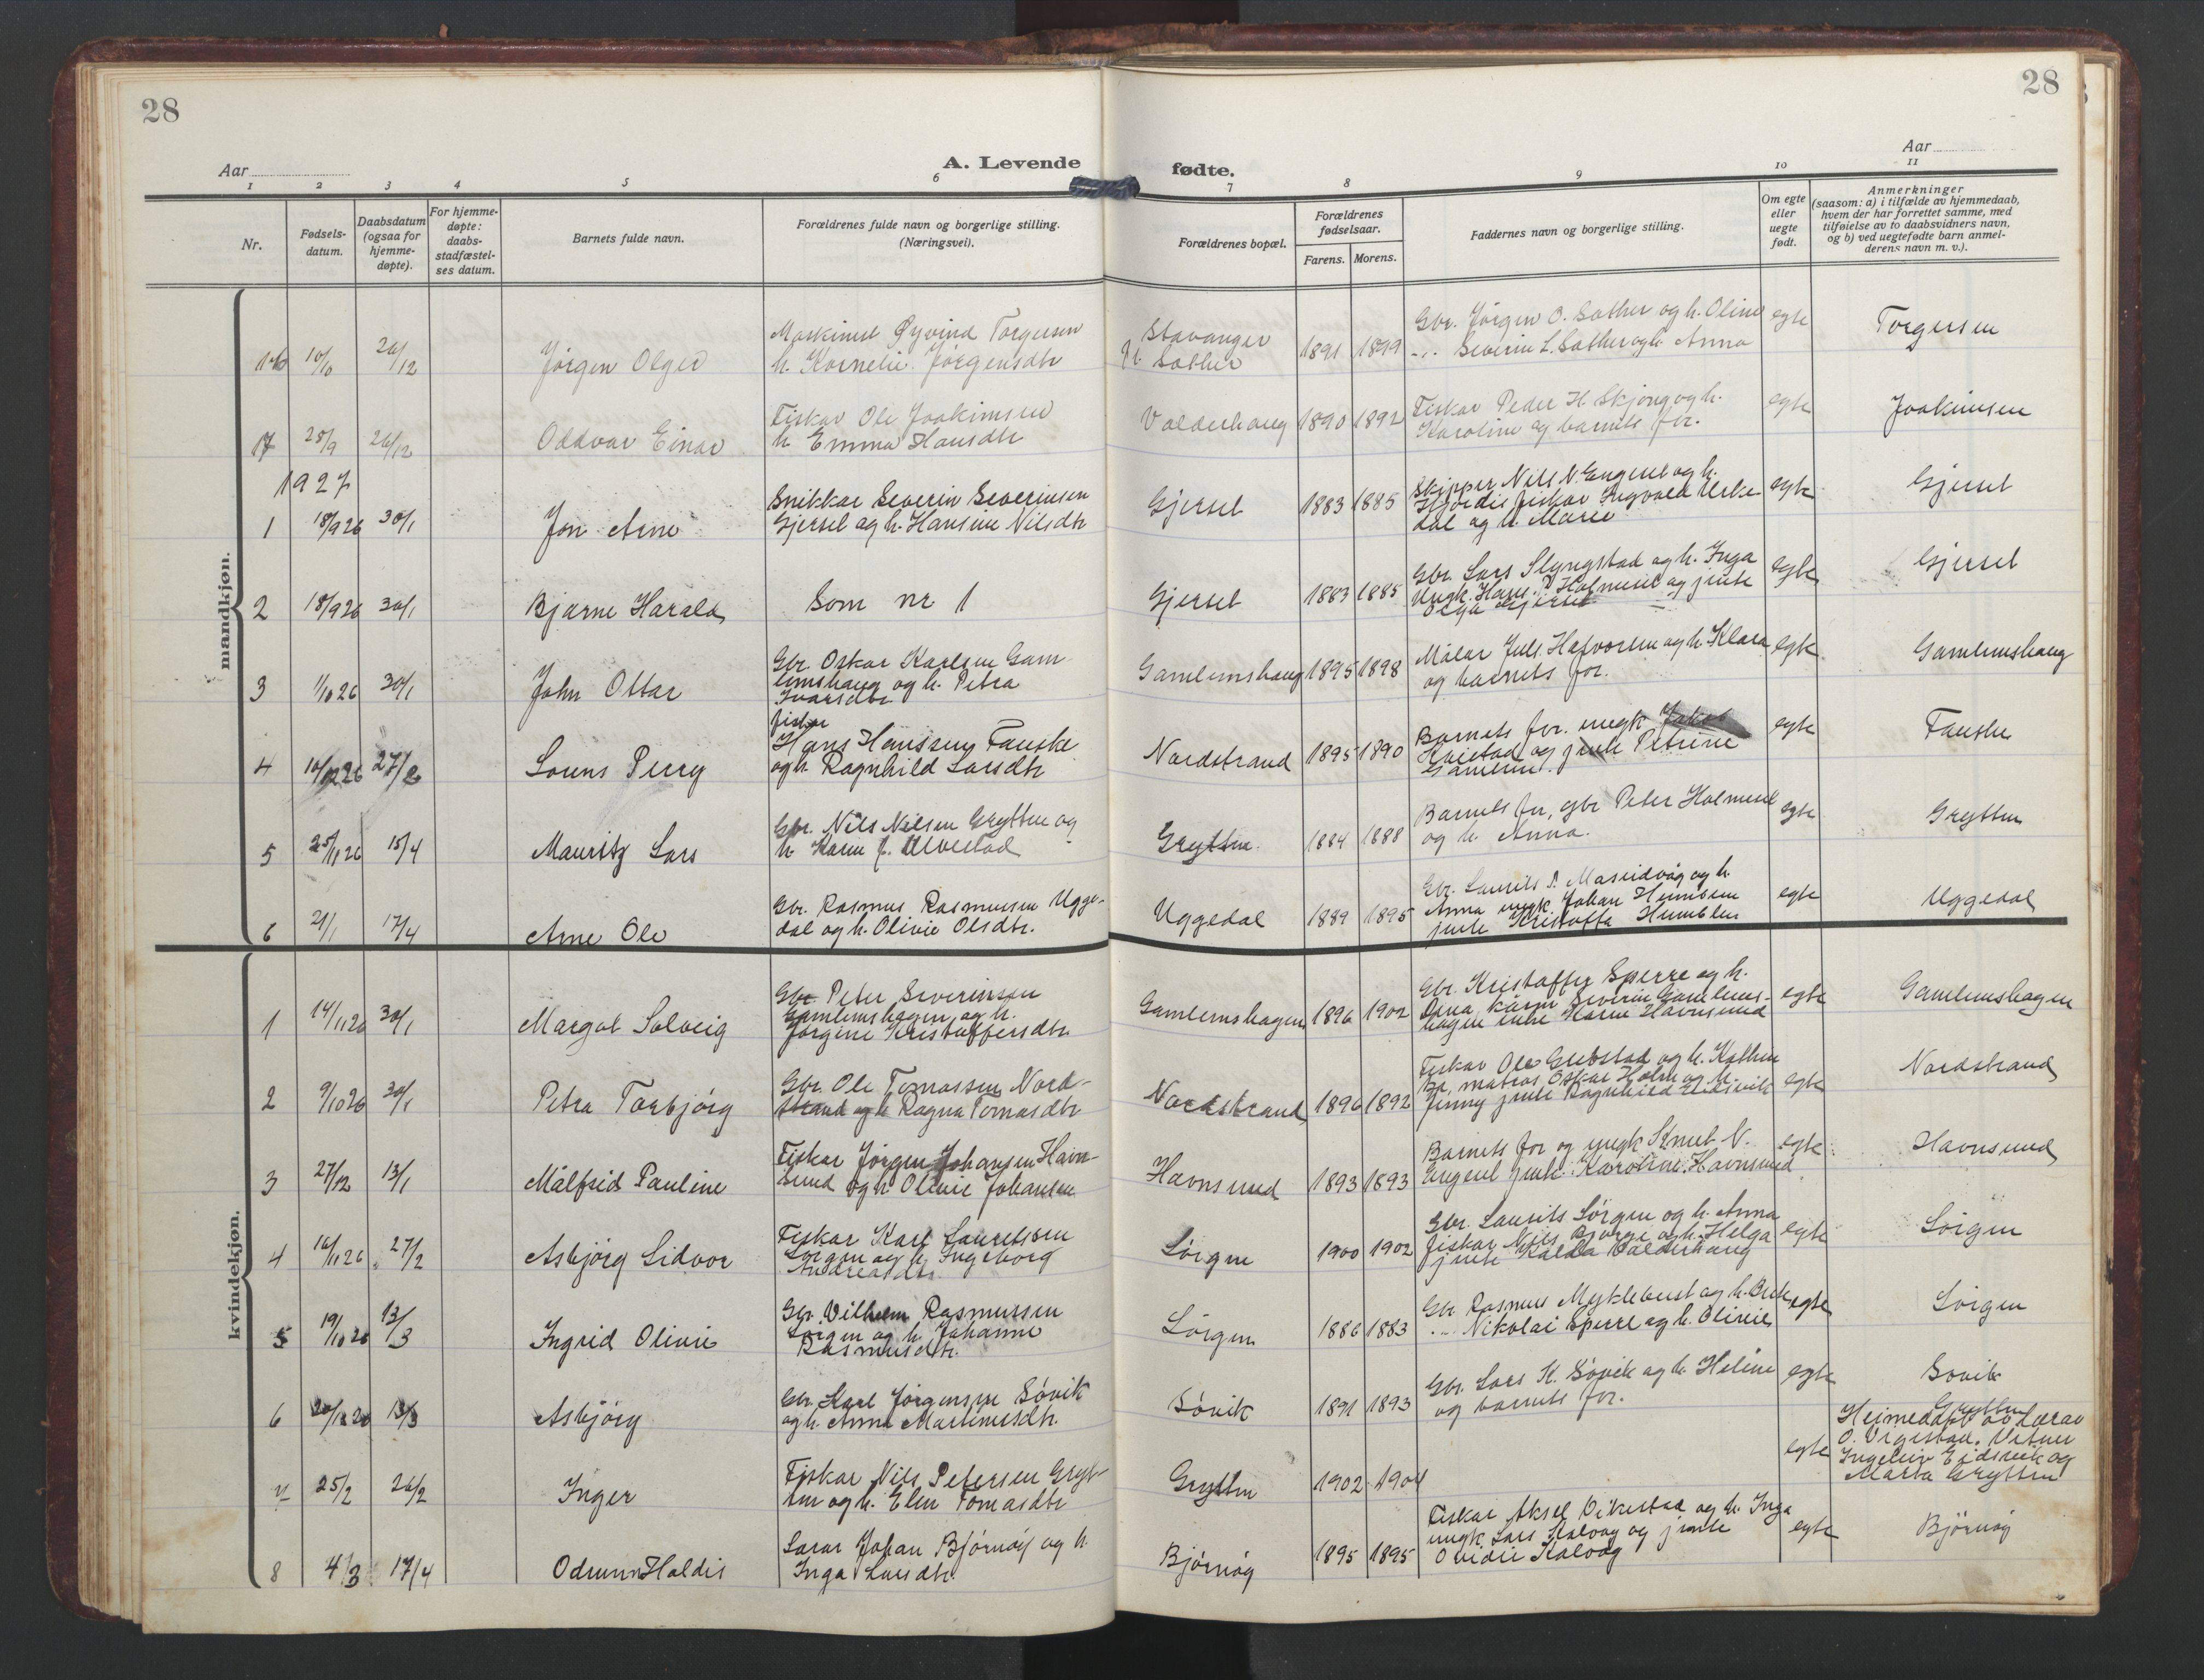 28
28
Aar
A. Levende
fødte.
Aar
1 2 3 4 5 6 7 8 9 10 11
Nr.
Fødsels-
datum.
Daabsdatum
(ogsaa for
hjemme-
døpte).
For hjemme-
døpte:
daabs-
stadfæstel-
ses datum.
Barnets fulde navn.
Forældrenes fulde navn og borgerlige stilling.
(Næringsvei).
Forældrenes bopæl.
Forældrenes
fødselsaar.
Farens. Morens.
Faddernes navn og borgerlige stilling.
Om egte
eller
uegte
født.
Anmerkninger
(saasom: a) i tilfælde av hjemmedaab,
hvem der har forrettet samme, med
tilføielse av to daabsvidners navn,
og b) ved uegtefødte barn anmel-
derens navn m. v.).
mandkjøn.
16 10/10 26/12 Jörgen Olger
Maskinist Öyvind Torgersen
h. Kornelie Jörgensdtr
Stavanger
Sother
1891 1899
Gbr. Jörgen O. Sother og h. Oline
-,,- Severin L. Sother og h. Anna
egte Torgersen
17 25/9 26/12 Oddvar Einar
Fiskar Ole Joakimsen
h. Emma Hansdtr
Valderhaug 1890 1892
Fiskar Peder H. Skjong og h.
Karoline og barnets for.
egte Joakimsen
1927
1 18/9 26 30/1 Jon Arne
Snikkar Severin Severinsen
Gjerset og h. Hansine Nilsdtr
Gjerset 1883 1885
Skipper Nils N. Engeset og h.
Hjördis fiskar Ingvald Urke-
dal og h. Marie
egte Gjerset
2 18/9 26 30/1 Bjarne Harald
Som nr 1
Gjerset 1883 1885
Gbr. Lars Slyngstad og h. Inga
Ungk. Hans P. Holmeset og jente
Olga Gjerset
egte Gjerset
3 1/10 26 30/1 John Ottar
Gbr. Oskar Karlsen Gam-
lemshaug og h. Petra
Ivarsdtr
Gamlemshaug 1895 1898
Målar Juls Halvorsen og h. Klara
og barnets for.
egte Gamlemshaug
4 27/2 Lorens Perry
fiskar
Hans Hanssen Fauske
og h. Ragnhild Larsdtr
Nordstrand 1895 1890
Barnets for. ungk Jakob
og jente Petrine
Gamlem.
egte Fauske
5 25/11 26 18/4 Mauritz Lars
Gbr. Nils Nilsen Grytten og
h Karen f. Ulvestad
Grytten. 1884 1888
Barnets for, gbr Peter Holmeset
og h Anna.
egte Grytten
6 21/1 17/4 Arne Olv
Gbr. Rasmus Rasmussen Ugge-
dal og h. Olivie Olsdtr.
Uggedal 1889 1895
Gbr. Laurits P. Masseidvåg og h.
Anna ungk. Johan Humblen
jente Kristoffa Humblen
egte Uggedal
kvindekjøn.
1 14/11 26 30/1 Margot Solveig
Gbr. Peter Severinsen
Gamlemshagen og h.
Jörgine Kristoffersdtr
Gamlemshagen 1896 1902
Gbr. Kristoffer Sperre og h.
Dina kårm Severin Gamlems-
hagen Havnsund
egte Gamlemshagen
2 9/10 26 30/1 Petra Torbjörg
Gbr. Ole Tomassen Nord-
strand og h Ragna Tomasdtr
Nordstrand 1896 1892
Fiskar Ole Grebstad og h. Kathrine
matros Oskar Holm og h.
Jinny jente Ragnhild Eidsvik
egte Nordstrand
3 27/12 13/1 Målfrid Pauline
Fiskar Jörgen Johansen Havn-
sund og h Olivie Johansen
Havnsund 1893 1893
Barnets for og ungk Knut N.
Engeset jente Karoline Havnsund
egte Havnsund
4 16/11 26 27/2 Asbjörg Lidvor
Fiskar Karl Lauritssen
Lörgen og h. Ingeborg
Andreasdtr
Lörgen 1900 1902
Gbr. Laurits Lörgen og h. Anna
fiskar Nils Bjørge og h. Helga
jente Valderhaug
egte Lörgen
5 19/10 26 13/3 Ingrid Olivie
Gbr. Vilhelm Rasmussen
Lörgen og h. Johanne
Rasmusdtr.
Lörgen 1886 1883
Gbr Rasmus Myklebust og h. Berte
-,,- Nikolai Sperre og h. Olivie
egte Lörgen
6 20/12 26 13/3 Asbjörg
Gbr. Karl Jörgensen Sövik
og h. Anna Martinusdtr.
Sövik 1891 1893
Gbr. Lars K. Sövik og h. Heline
og barnets for.
egte Sovik
7 25/2 26/2 Inger
Fiskar Nils Petersen Gryt-
ten og h. Elen Tomasdtr
Grytten 1902 1904
egte
Gryttn
Heimedöbt av lærar
O. Vegestad. Vitner
Ingeleiv Eidsvik og
Marta Gryttn
8 4/3 17/4 Odrunn Haldis
Lærar Johan Björnöy og h.
Inga Larsdtr.
Björnöy 1895 1895
Fiskar Aksel Vikestad og h. Inga
ungk Lars Kalvåg og jente
Ovidie Kalvåg
egte Björnöy